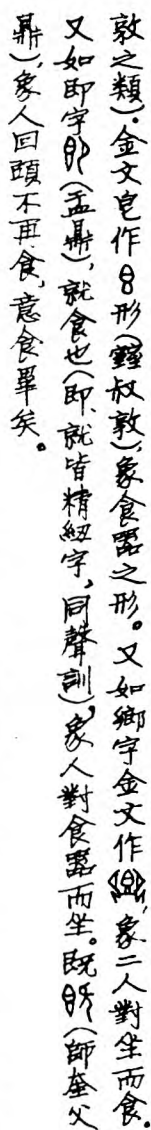 敦之類)。金文皀作形(叔敦),象食器之形。又如鄉字金文作,象二人對坐而食。
又如即字(盂鼎),就食也(即、就皆精紐字,同聲訓),象人對食器而坐。既(師奎父
鼎),象人回頤不再食,意食畢矣。